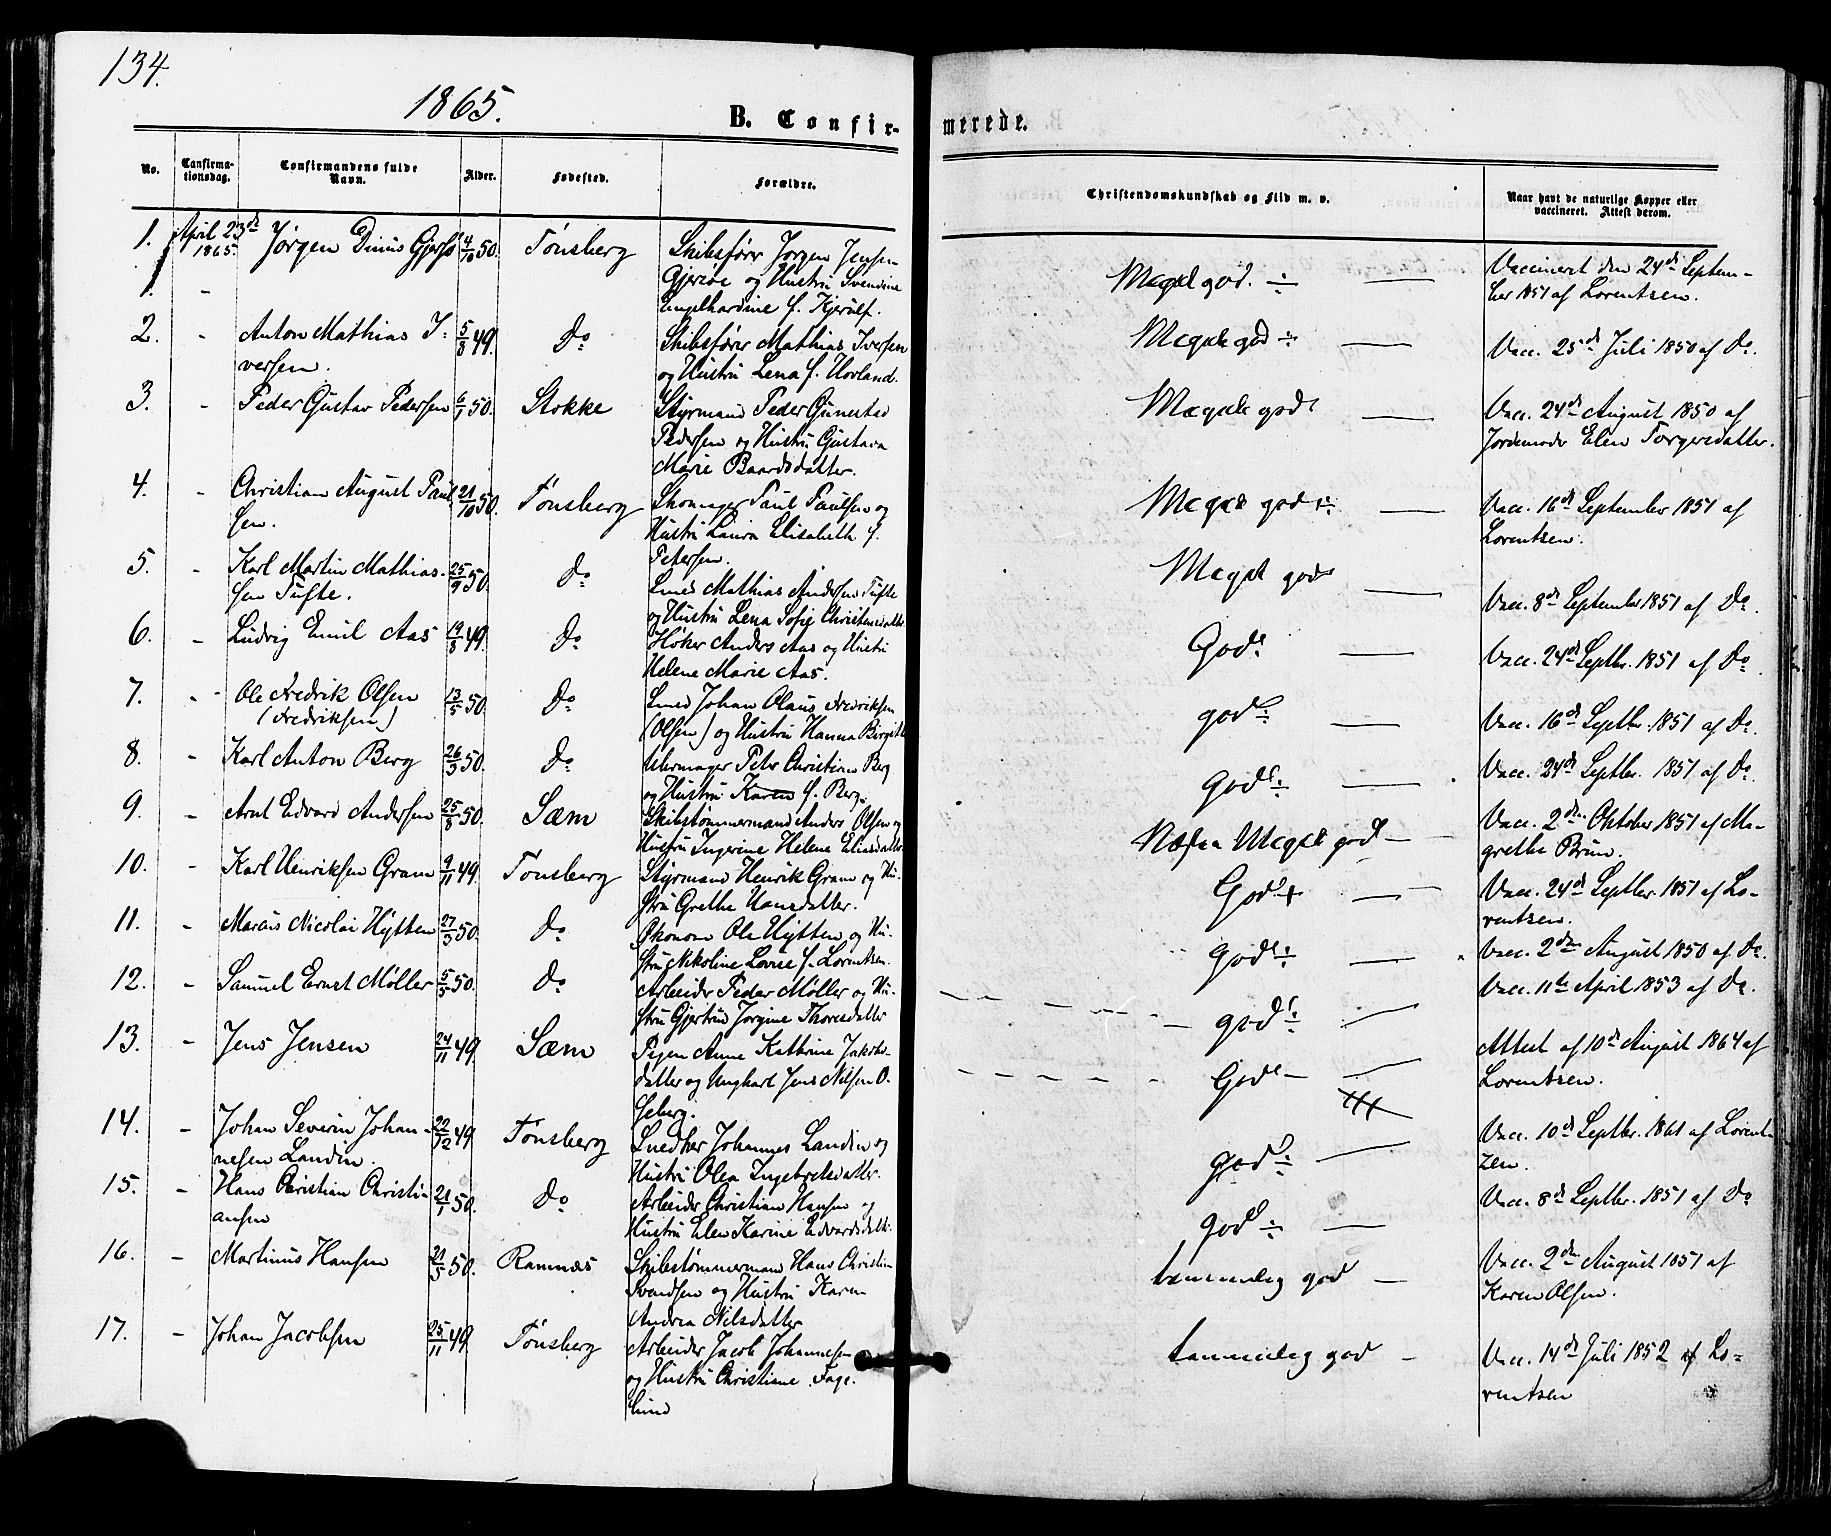 134.
1865.
B. Confir-
merede.
No.
Confirma-
tionsdag.
Confirmandens fulde
Navn.
Alder.
Fødested.
Forældre.
Christendomskundskab og Flid m. v.
Naar havt de naturlige Kopper eller
vaccineret. Attest derom.
1. April 23de 1865. Jørgen Dinus Gjersø 4/10 50. Tønsberg Skibsfører Jørgen Jensen
Gjersøe og Hustru Svendine
Engelhardine f. Kjerulf.
Meget god. ÷ —
Vaccineret den 24de Septem-
ber 1851 af Lorentsen.
2. - Anton Mathias I-
versen.
5/8 49. Do Skibsfører Mathias Iversen
og Hustru Lena f. Horland.
Meget god ÷ —
Vacc. 25de Juli 1850 af Do.
3. - Peder Gustav Pedersen 6/1 50. Stokke Styrmand Peder Gunestad
Pedersen og Hustru Gustava
Marie Baardsdatter.
Meget god —
Vacc. 24de August 1850 af
Jordemoder Elen Torgersdatter.
4. - Christian August Paul-
sen.
21/10 50. Tønsberg Skomager Paul Paulsen og
Hustru Laura Elisabeth f.
Petersen.
Meget god ÷ —
Vacc. 16de September 1851 af
Lorentsen.
5. - Karl Martin Mathias-
sen Tufte.
25/9 50. Do Smed Mathias Andersen Tufte
og Hustru Lena Sofie Christensdatter
Meget god —
Vacc. 8de September 1851 af Do.
6. - Ludvig Emil Aas 19/8 49. Do Høker Anders Aas og Hustru
Helene Marie Aas.
God. —
Vacc. 24de Septbr. 1851 af Do.
7. - Ole Fredrik Olsen
(Fredriksen)
13/5 50. Do Smed Johan Olaus Fredriksen
(Olsen) og Hustru Hanna Birgitte
god ÷ —
Vacc. 16de Septbr. 1851 af Do.
8. - Karl Anton Berg 26/3 50. Do Uhrmager Petr Christian Berg
og Hustru Karen f. Berg.
god ÷ —
Vacc. 24de Septbr. 1851 af Do.
9. - Arnt Edvard Andersen 25/8 50. Sæm Skibstømmermand Anders Olsen og
Hustru Ingerine Helene Eliasdatter
Næsten Meget god —
Vacc. 2den Oktober 1851 af Ma-
grethe Brun.
10. - Karl Henriksen Gram 9/11 49. Tønsberg Styrmand Henrik Gram og Hu-
stru Grethe Hansdatter.
God + —
Vacc. 24de Septbr. 1851 af Lo-
rentsen.
11. - Marcus Nicolai Hytten 27/3 50. Do Økonom Ole Hytten og Hu-
stru Nikoline Lovise f. Lorentsen.
god ÷ —
Vacc. 2den August 1850 af Do.
12. - Samuel Ernst Møller 5/5 50. Do Arbeider Peder Møller og Hu-
stru Gjertru Jorgine Thoresdatter
god ÷ —
Vacc. 11te April 1853 af Do.
13. - Jens Jensen 24/11 49. Sæm Pigen Anne Kathrine Jakobs-
datter og Ungkarl Jens Nilsen O-
seberg.
God — —
Attest af 10de August 1864 af
Lorentsen.
14. - Johan Severin Johan-
nesen Landin.
22/12 49. Tønsberg Snedker Johannes Landin og
Hustru Olea Ingebretsdatter.
god ÷ —
Vacc. 10de Septbr. 1861 af Lorent-
zen.
15. - Hans Christian Christi-
ansen
21/1 50. Do Arbeider Christian Hansen og
Hustru Elen Karine Edvardsdatter
god ÷ —
Vacc. 8de Septbr. 1851 af Do
16. - Martinus Hansen 21/5 50. Ramnæs Skibstømmermand Hans Christian
Svendsen og Hustru Karen
Andrea Nilsdatter
temmelig god —
Vacc. 2den August 1851 af
Karen Olsen.
17. - Johan Jacobsen 25/11 49. Tønsberg Arbeider Jacob Johannesen
og Hustru Christiane Fage-
lund
temmelig god —
Vacc. 14de Juli 1852 af Lo-
rentsen